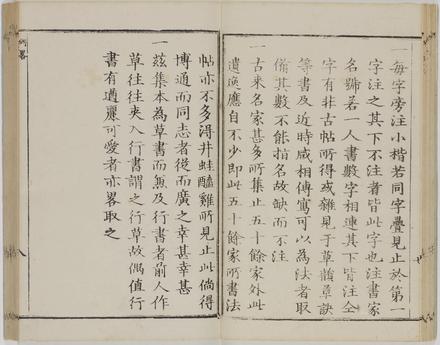 一每字旁注小楷若同字疊見止於第一
字注之其下不注者皆此字也注書家
名號若一人書數字相連其下皆注仝
字有非古帖所得或雜見于草韻草訣
等書及近時咸相傳寫可以為法者取
備其數不能指名故缺而不注
一古来名家甚多所集止五十餘家外此
遺淚應自不少即此五十餘家所書法
帖亦不多淂井蛙醯雞所見止此倘得
博通而同志者從而廣之幸甚幸甚
一茲集本為草書而無及行書者前人作
草往往夾入行書謂之行草故偶值行
書有遒麗可愛者亦畧取之